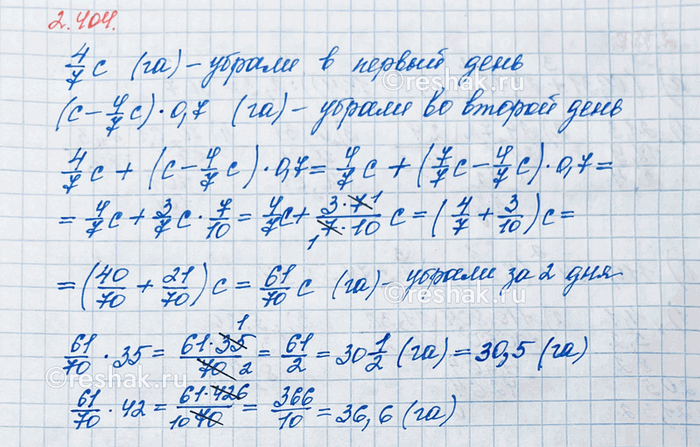 2.404.
4/7 c (га) - убрали в первый день
(c - 4/7 c) · 0,7 (га) - убрали во второй день
4/7 c + (c - 4/7 c) · 0,7 = 4/7 c + (7/7 c - 4/7 c) · 0,7 =
= 4/7 c + 3/7 c · 7/10 = 4/7 c + (3·7 1)/(1 7·10) c = (4/7 + 3/10) c =
= (40/70 + 21/70) c = 61/70 c (га) - убрали за 2 дня
61/70 · 35 = (61·35 1)/(70 2) = 61/2 = 30 1/2 (га) = 30,5 (га)
61/70 · 42 = (61·42 6)/(10 70) = 366/10 = 36,6 (га)
©reshak.ru
©reshak.ru
©reshak.ru